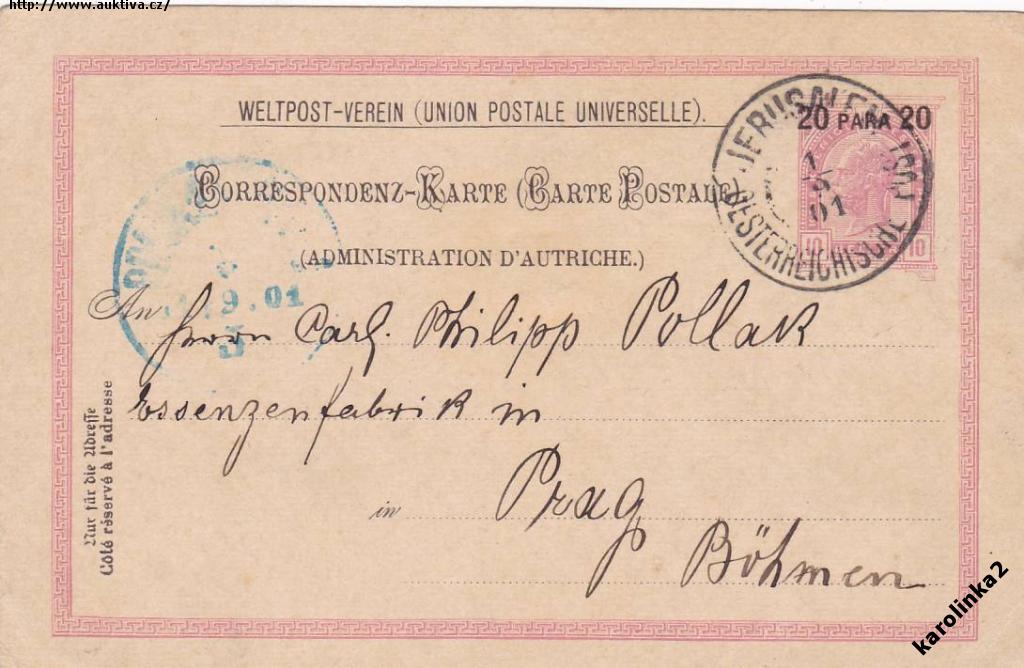 http://www.auktiva.cz/
WELTPOST-VEREIN (UNION POSTALE UNIVERSELLE).
20 PARA 20
JERUSALEM
OESTERREICHISCHE
1
9
01
10 10
CORRESPONDENZ-KARTE (CARTE POSTALE)
(ADMINISTRATION D'AUTRICHE.)
9.01
An Herrn Carl Philipp Pollak
Essenzenfabrik in
in Prag
Böhmen
Nur für die Adresse
Côté réservé à l'adresse
karolinka2